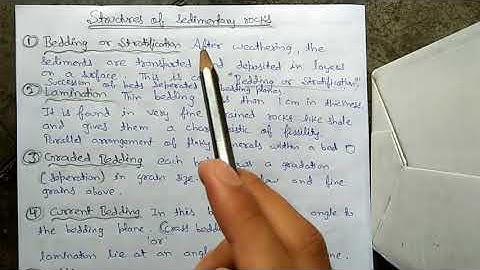 Structures of sedimentary rocks
① Bedding or Stratification After weathering, the
sediments are transported and deposited in layers
on a surface. This is "Bedding or Stratification"
Sucession of beds seperated bedding planes
② Lamination Thin bedding less than 1 cm in thickness
It is found in very fine grained rocks like shale
and gives them a characteristic of fissility.
Parallel arrangement of flaky minerals within a bed
③ Graded Bedding each has a gradation
(seperation) in grain size. low and fine
grains above.
④ Current Bedding In this angle to
the bedding plane. (Cross bedding
'or'
lamination lie at an angle